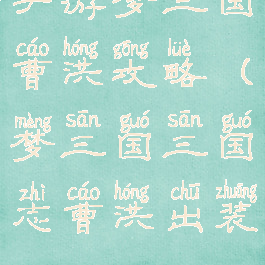 手游梦三国
cáo hóng gōng lüè
曹洪攻略（
mèng sān guó sān guó
梦三国三国
zhì cáo hóng chū zhuāng
志曹洪出装